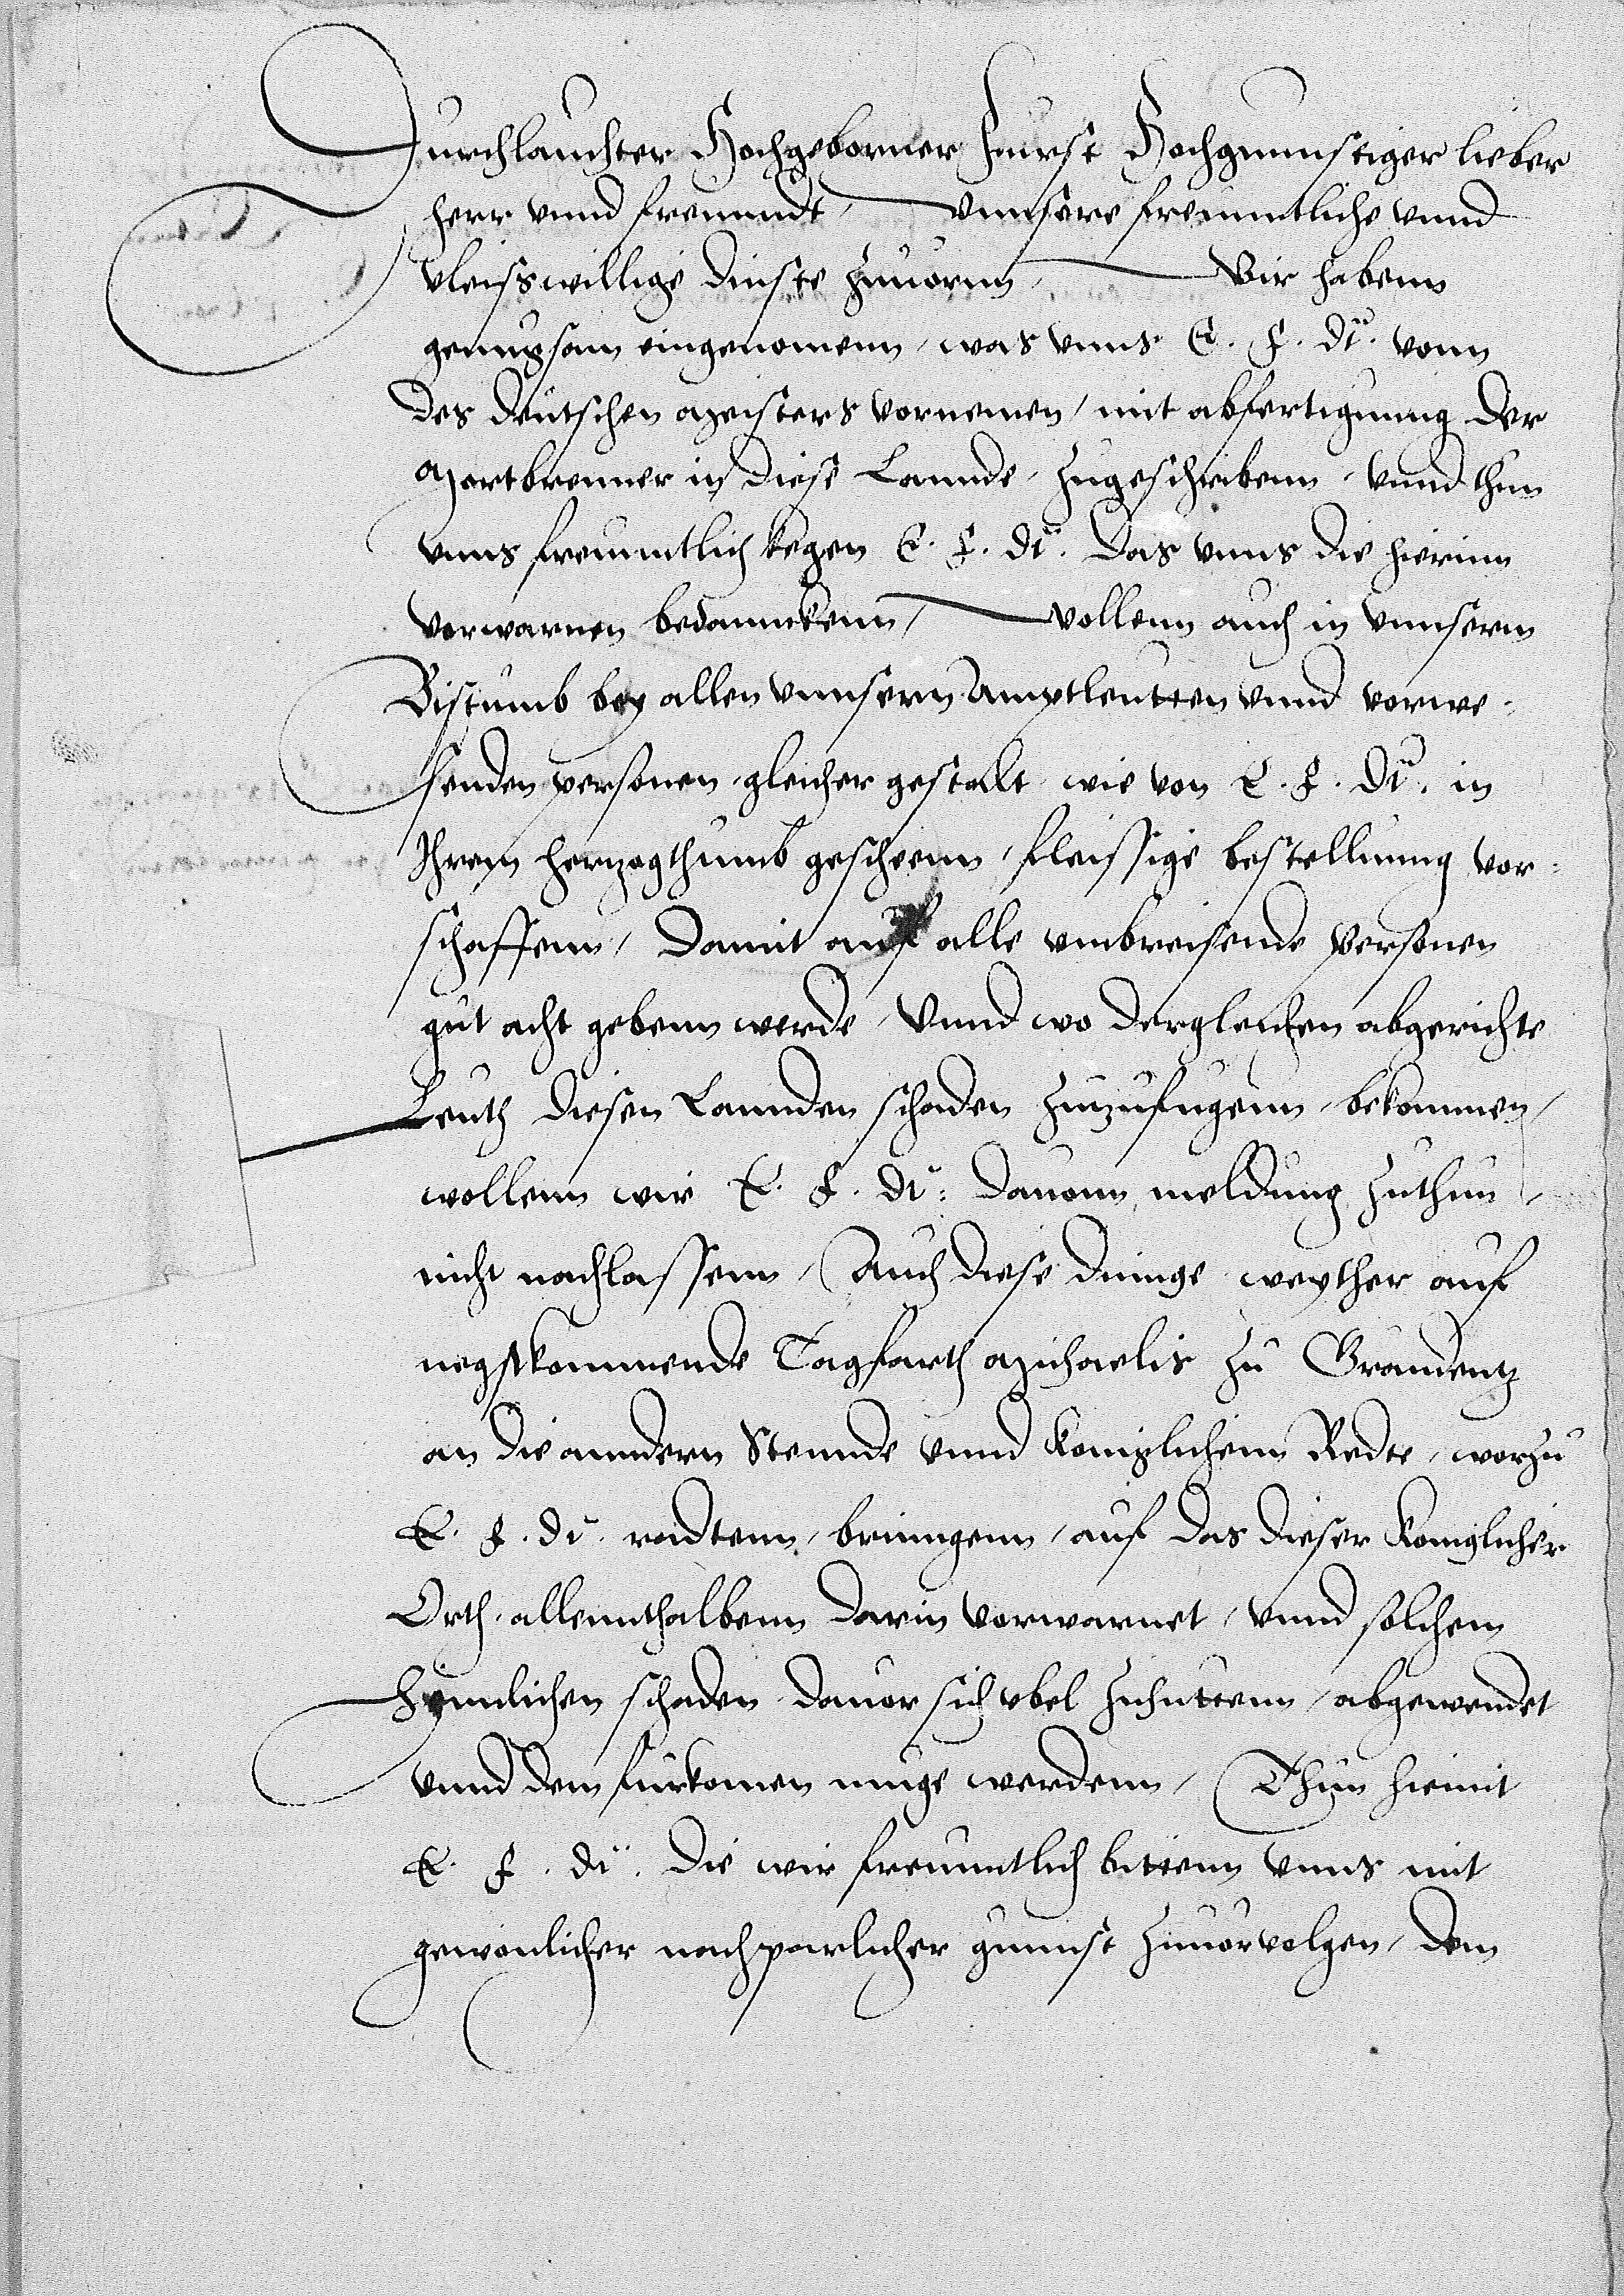 Durchlauchter Hochgeborner Furst Hochgunnstiger lieber
herr vnnd freunndt, Vnnsere freunntliche vnnd
vleisswillige dinste zuuornn, Wir habenn
genugsam eingenomenn, was vnns E. F. Dt. vonn
des deutschen meisters vornemen, mit abfertigunng der
Mortbrenner in diese Lannde, zugeschribenn, vnnd thun
vnns freunntlich kegen E. F. Dt. das vnns die hierinn
vorwarnen bedannckenn, Wollenn auch in vnnserm
Bistumb bey allen vnnsern Amptleutten vnnd vorwe=
senden personen, gleicher gestalt, wie von E. F. Dt. in
Ihrem herzogthumb gescheenn, fleissige bestellunng vor=
schaffenn, Damit auf alle vmbreisende Personen
gut acht gebenn werde, Vnnd wo dergleichen abgerichte
Leuth diesen Lannden schaden zuzufugenn, bekommen,
wollenn wir E. F. Dt: dauonn meldung zuthun,
nicht nachlassenn, Auch diese dinnge weyther auf
negstkommende Tagfarth Michaelis zu Graudentz
an die anndern Stennde vnnd Koniglichenn Redte, worzu
E. F. Dt. radtenn, brinngenn, auf das dieser Koniglicher
Orth, allennthalbenn darin vorwarnet, vnnd solchem
heymlichen schaden, dauor sich vbel zuhuttenn, abgewendet
vnnd dem furkomen muge werdenn, Thun hiemit
E. F. Dt. die wir freunntlich bittenn vnns mit
gewonlicher nachparlicher gunnst zuuorvolgen, dem